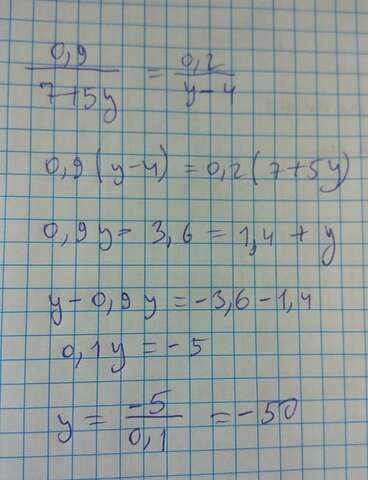 0,9/(7+5y) = 0,2/(y-4)
0,9(y-4) = 0,2(7+5y)
0,9y - 3,6 = 1,4 + y
y - 0,9y = -3,6 - 1,4
0,1y = -5
y = -5/0,1 = -50